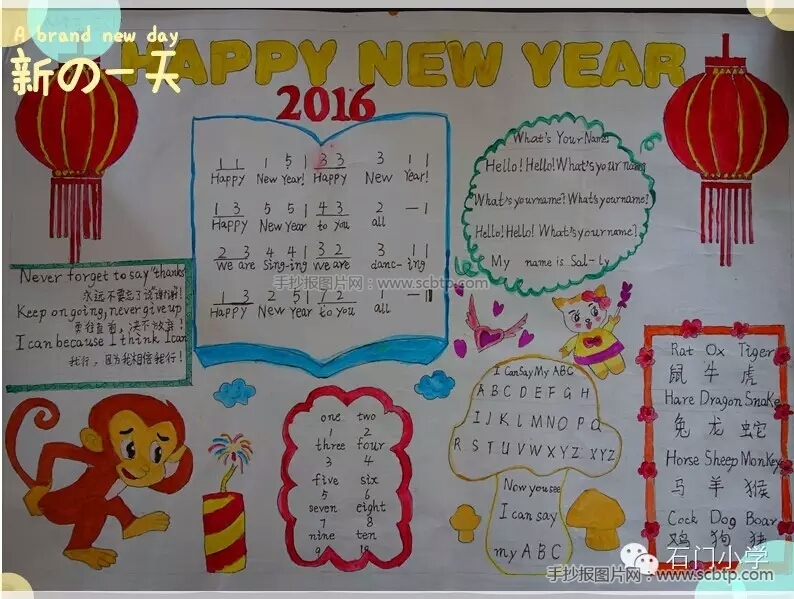 A brand new day
新の一天
HAPPY NEW YEAR
2016
1 1 1 5 1 3 3 3 1 1
Happy New Year! Happy New Year!
1 3 5 5 1 4 3 2 — 1
Happy New Year to you all
2 3 4 4 1 3 2 3 1 1
We are Sing-ing we are danc-ing
手抄报图片网：www.scbtp.com
1 3 2 5 1 7 2 1 —
Happy New Year to you all
What's Your Name
Hello! Hello! What's your name
What's your name? What's your name!
Hello! Hello! What's your name?
My name is Sal-ly
Never forget to say "thanks"
永远不要忘了说"谢谢"!
Keep on going, never give up
勇往直前，决不放弃!
I can because I think I can
我行，因为我相信我行!
one two
1 2
three four
3 4
five six
5 6
seven eight
7 8
nine ten
9 10
I Can Say My ABC
A B C D E F G H
I J K L M N O P Q
R S T U V W X Y Z XYZ
Now you see
I can say
my A B C
Rat Ox Tiger
鼠 牛 虎
Hare Dragon Snake
兔 龙 蛇
Horse Sheep Monkey
马 羊 猴
Cock Dog Boar
鸡 狗 猪
石门小学
手抄报图片网：www.scbtp.com